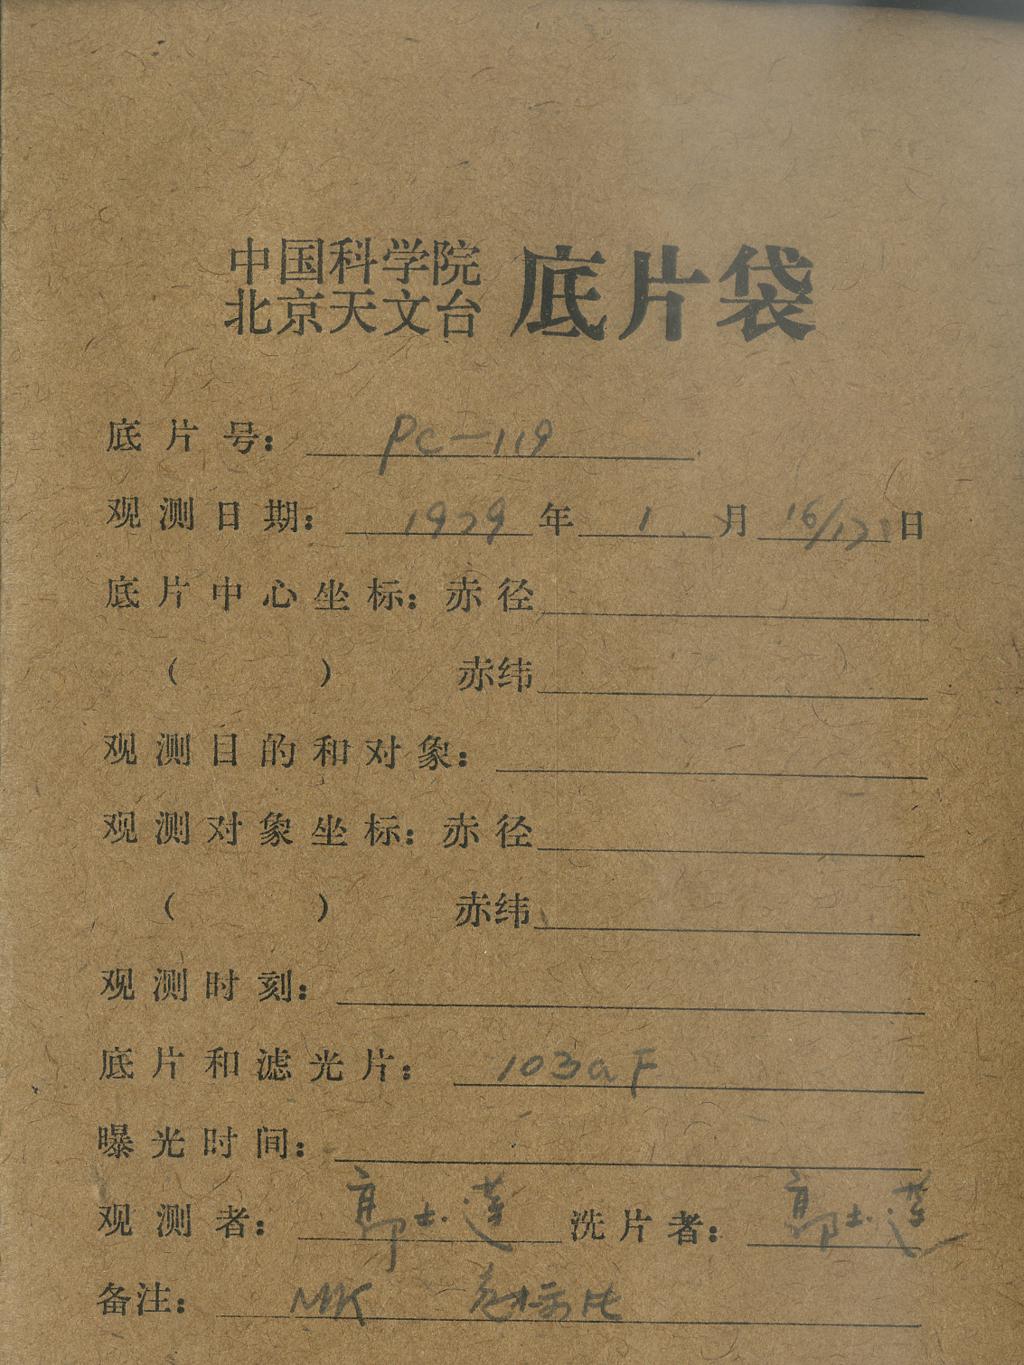 中国科学院
北京天文台 底片袋
底片号： PC-119
观测日期： 1979 年 1 月 16/17 日
底片中心坐标：赤径
（ ） 赤纬
观测目的和对象：
观测对象坐标：赤径
（ ） 赤纬
观测时刻：
底片和滤光片： 103aF
曝光时间：
观测者： 郭士莲 洗片者： 郭士莲
备注： MK